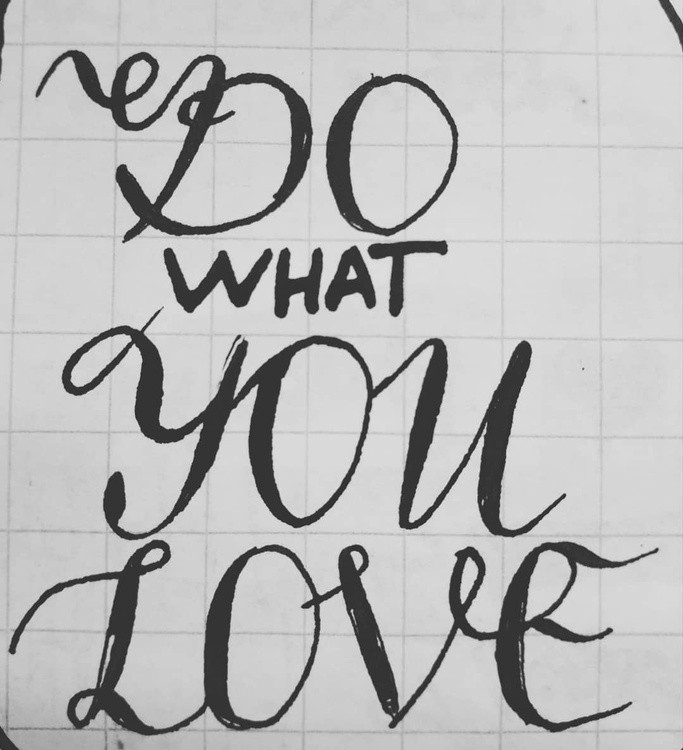 DO
WHAT
YOU
LOVE